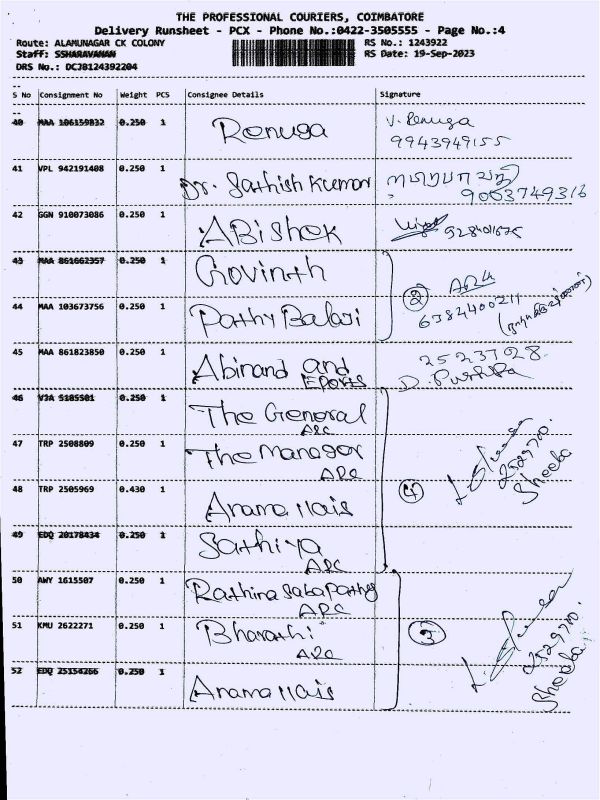 THE PROFESSIONAL COURIERS, COIMBATORE
Delivery Runsheet - PCX - Phone No.:0422-3505555 - Page No.:4
Route: ALAMUNAGAR CK COLONY RS No.: 1243922
Staff: SSHARAVANAN RS Date: 19-Sep-2023
DRS No.: DCJB124392204
S No Consignment No Weight PCS Consignee Details Signature
40 MAA 106159832 0.250 1 Renuga V. Renuga
9943949155
41 VPL 942191408 0.250 1 Dr. Sathish Kumar
9003749316
42 GGN 910073086 0.250 1 ABishek
43 MAA 861662357 0.250 1 Govinth
44 MAA 103673756 0.250 1 Pathy Balaji ②
6382400211
45 MAA 861823850 0.250 1 Abinand and 2523728
Eports D. Pushpa
46 VJA 5185501 0.250 1 The General
ARC
47 TRP 2508809 0.250 1 The Manager
ARC
48 TRP 2505969 0.430 1 Anamallais ④ 2529700.
Sheeba
49 EDQ 20178434 0.250 1 Sathiya
ARC
50 AWY 1615507 0.250 1 Rathina Sabapathy
ARC
51 KMU 2622271 0.250 1 Bharathi ③ 2529700.
ARC Sheeba
52 EDQ 25154266 0.250 1 Anamallais